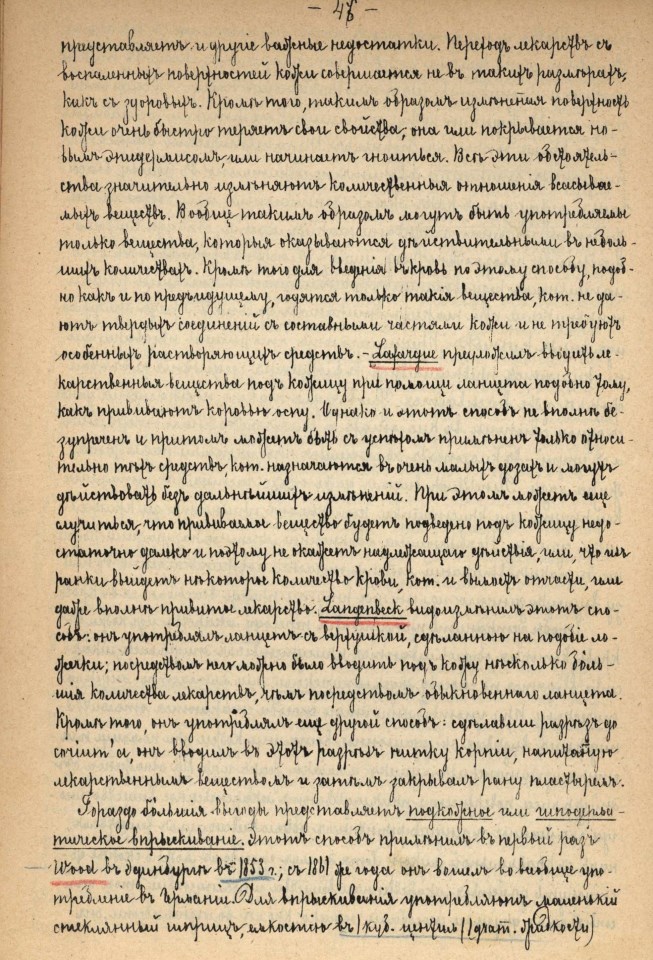 — 47 —
представляетъ и другіе важные недостатки. Переходъ лекарствъ съ
воспаленныхъ поверхностей кожи совершается не въ такихъ размѣрахъ,
какъ съ здоровыхъ. Кромѣ того, такимъ образомъ измѣненная поверхность
кожи очень быстро теряетъ свои свойства; она или покрывается но-
вымъ эпидермисомъ, или начинаетъ гноиться. Всѣ эти обстоятель-
ства значительно измѣняютъ количественныя отношенія всасывае-
мыхъ веществъ. Вообще такимъ образомъ могутъ быть употребляемы
только вещества, которыя оказываются дѣйствительными въ неболь-
шихъ количествахъ. Кромѣ того для введенія въ кровь по этому способу, подоб-
но какъ и по предъидущему, годятся только такія вещества, кот. не да-
ютъ твердыхъ соединеній съ составными частями кожи и не требуютъ
особенныхъ растворяющихъ средствъ. — Lafargue предложилъ вводить ле-
карственныя вещества подъ кожицу при помощи ланцета подобно тому,
какъ прививаютъ коровью оспу. Однако и этотъ способъ не вполнѣ бе-
зупреченъ и притомъ можетъ быть съ успѣхомъ примѣненъ только относи-
тельно тѣхъ средствъ кот. назначаются въ очень малыхъ дозахъ и могутъ
дѣйствовать безъ дальнѣйшихъ измѣненій. При этомъ можетъ еще
случиться, что прививаемое вещество будетъ подведено подъ кожицу недо-
статочно далеко и поэтому не окажетъ надлежащаго дѣйствія, или, что изъ
ранки выйдетъ нѣкоторое количество крови, кот. и вымоетъ отчасти, или
даже вполнѣ привитое лекарство. Langenbeck видоизмѣнилъ этотъ спо-
собъ: онъ употреблялъ ланцетъ съ верхушкой, сдѣланною на подобіе ло-
жечки; посредствомъ него можно было вводить подъ кожу нѣсколько бо́ль-
шія количества лекарствъ, чѣмъ посредствомъ обыкновеннаго ланцета.
Кромѣ того, онъ употреблялъ еще другой способъ: сдѣлавши разрѣзъ до
corium'a, онъ вводилъ въ этотъ разрѣзъ нитку корпіи, напитанную
лекарственнымъ веществомъ и затѣмъ закрывалъ рану пластыремъ.
Гораздо бо́льшія выгоды представляетъ подкожное или гиподерма-
тическое впрыскиваніе. Этотъ способъ примѣнилъ въ первый разъ
Wood въ Эдинбургѣ въ 1853 г.; съ 1861 же года онъ вошелъ во всеобще упо-
требленіе въ Германіи. Для впрыскиванія употребляютъ маленькій
стеклянный шприцъ, емкостію въ 1 куб. центим (1 грам. жидкости)